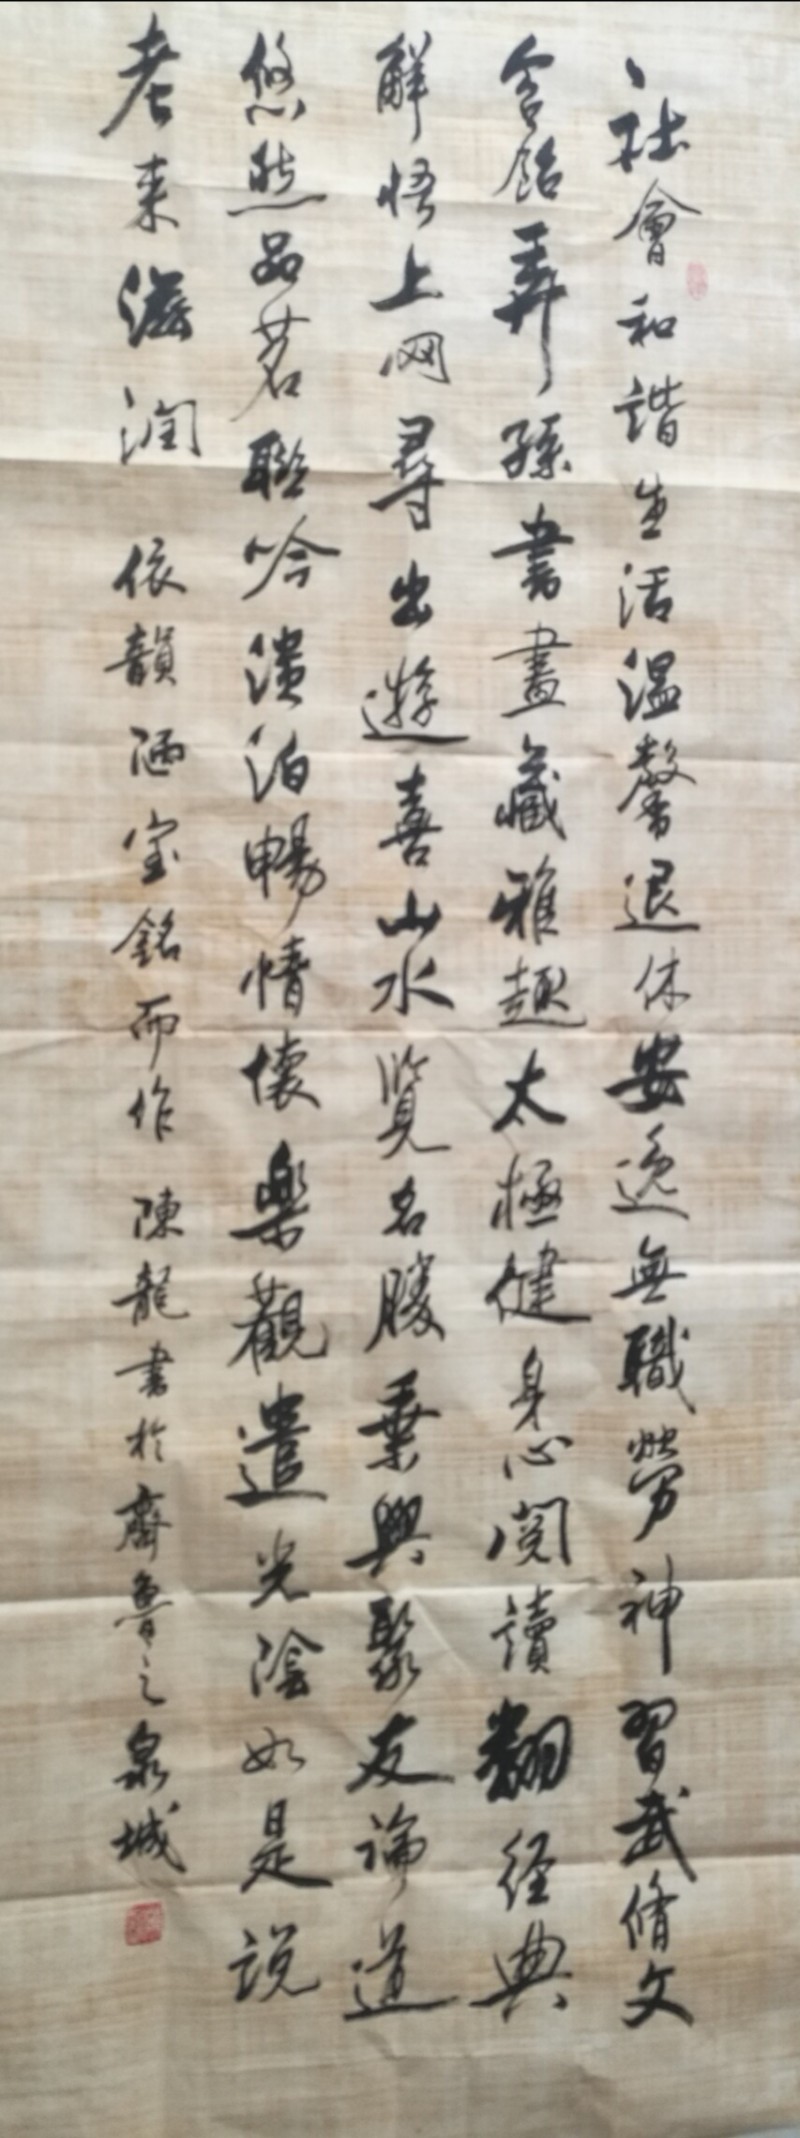 社會和諧生活温馨退休安逸無職勞神習武脩文
含飴弄孫書畫藏雅趣太極健身心閱讀翻经典
解悟上网尋出遊喜山水覽名勝乗興聚友論道
悠然品茗聯吟淡泊暢情懷樂觀遣光陰如是説
老来滋潤 依韻陋室銘而作 陳龍書於齊魯之泉城